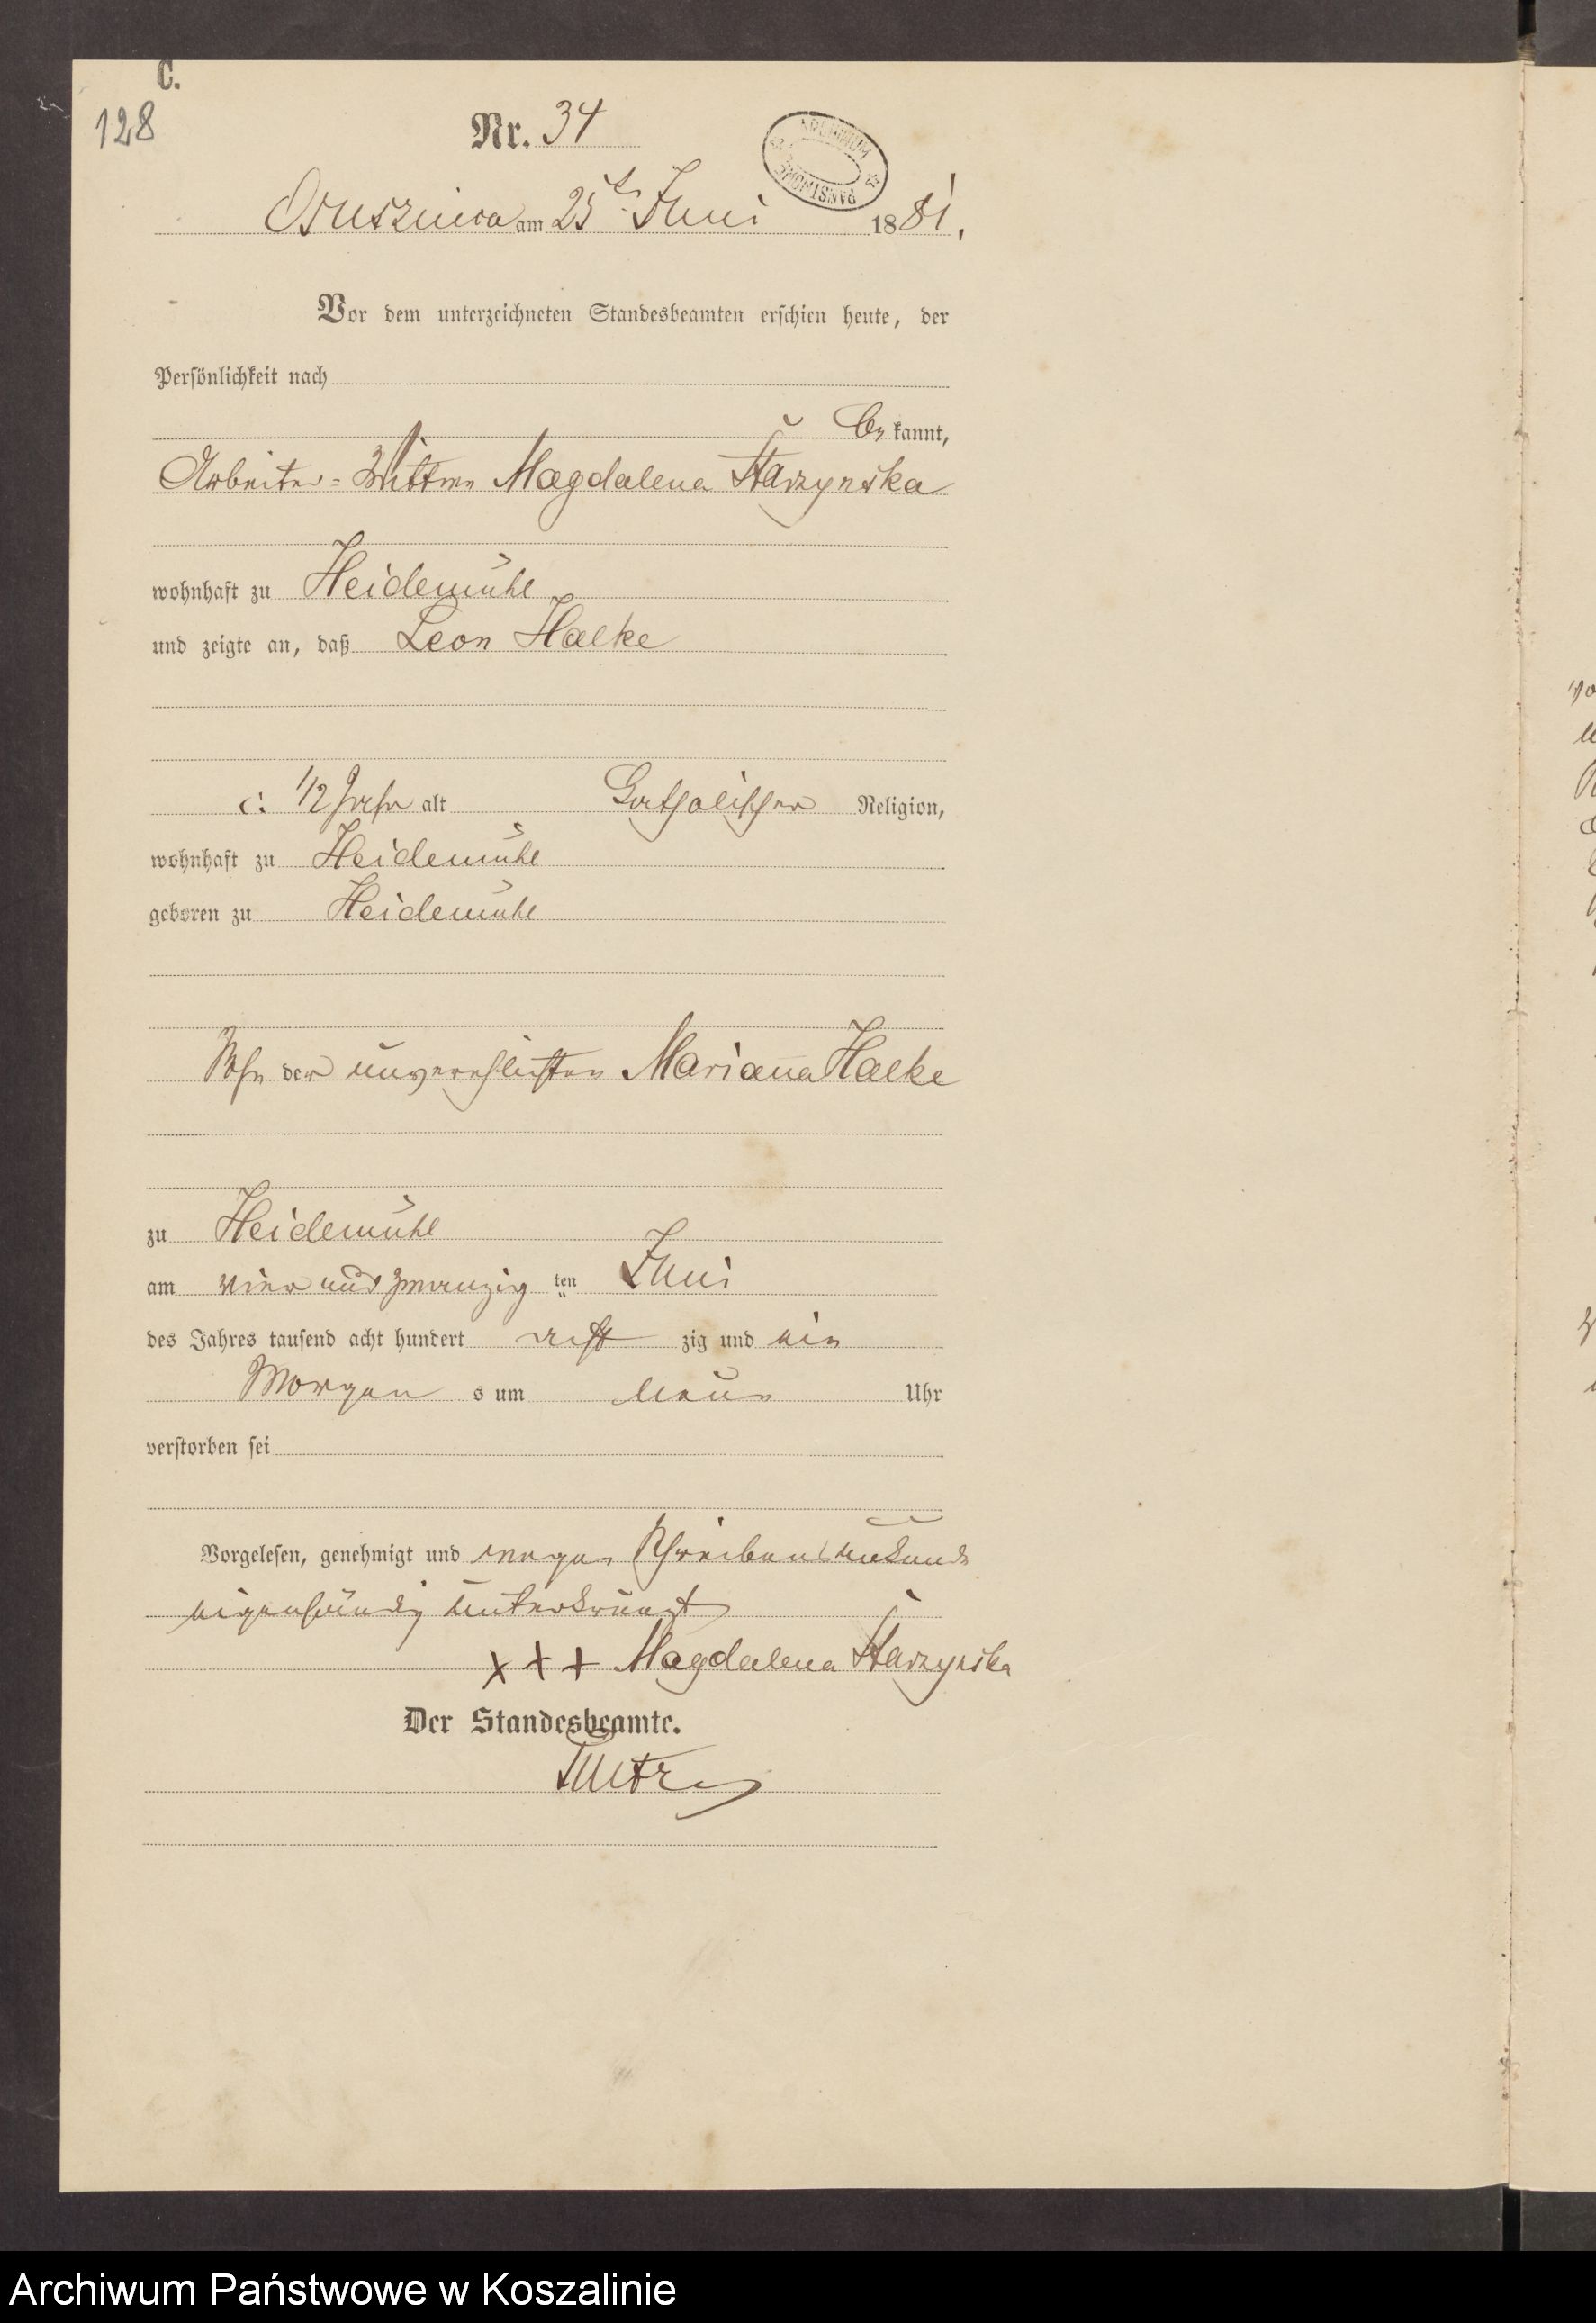 C.
128
Nr. 34
Osusznica am 25t Juni 1881.
ARCHIWUM PAŃSTWOWE
Vor dem unterzeichneten Standesbeamten erschien heute, der
Persönlichkeit nach
be kannt,
Arbeiter-Wittwe Magdalena Starzynska
wohnhaft zu Heidemühl
und zeigte an, daß Leon Halke
c. 1/2 Jahr alt Catholischer Religion,
wohnhaft zu Heidemühl
geboren zu Heidemühl
Sohn der unverehlichten Mariana Halke
zu Heidemühl
am vier und zwanzig ten Juni
des Jahres tausend acht hundert acht zig und ein
Morgen s um neun Uhr
verstorben sei
Vorgelesen, genehmigt und wegen Schreibensunkunde
eigenhändig unterkreuzt
+ + + Magdalena Starzynska
Der Standesbeamte.